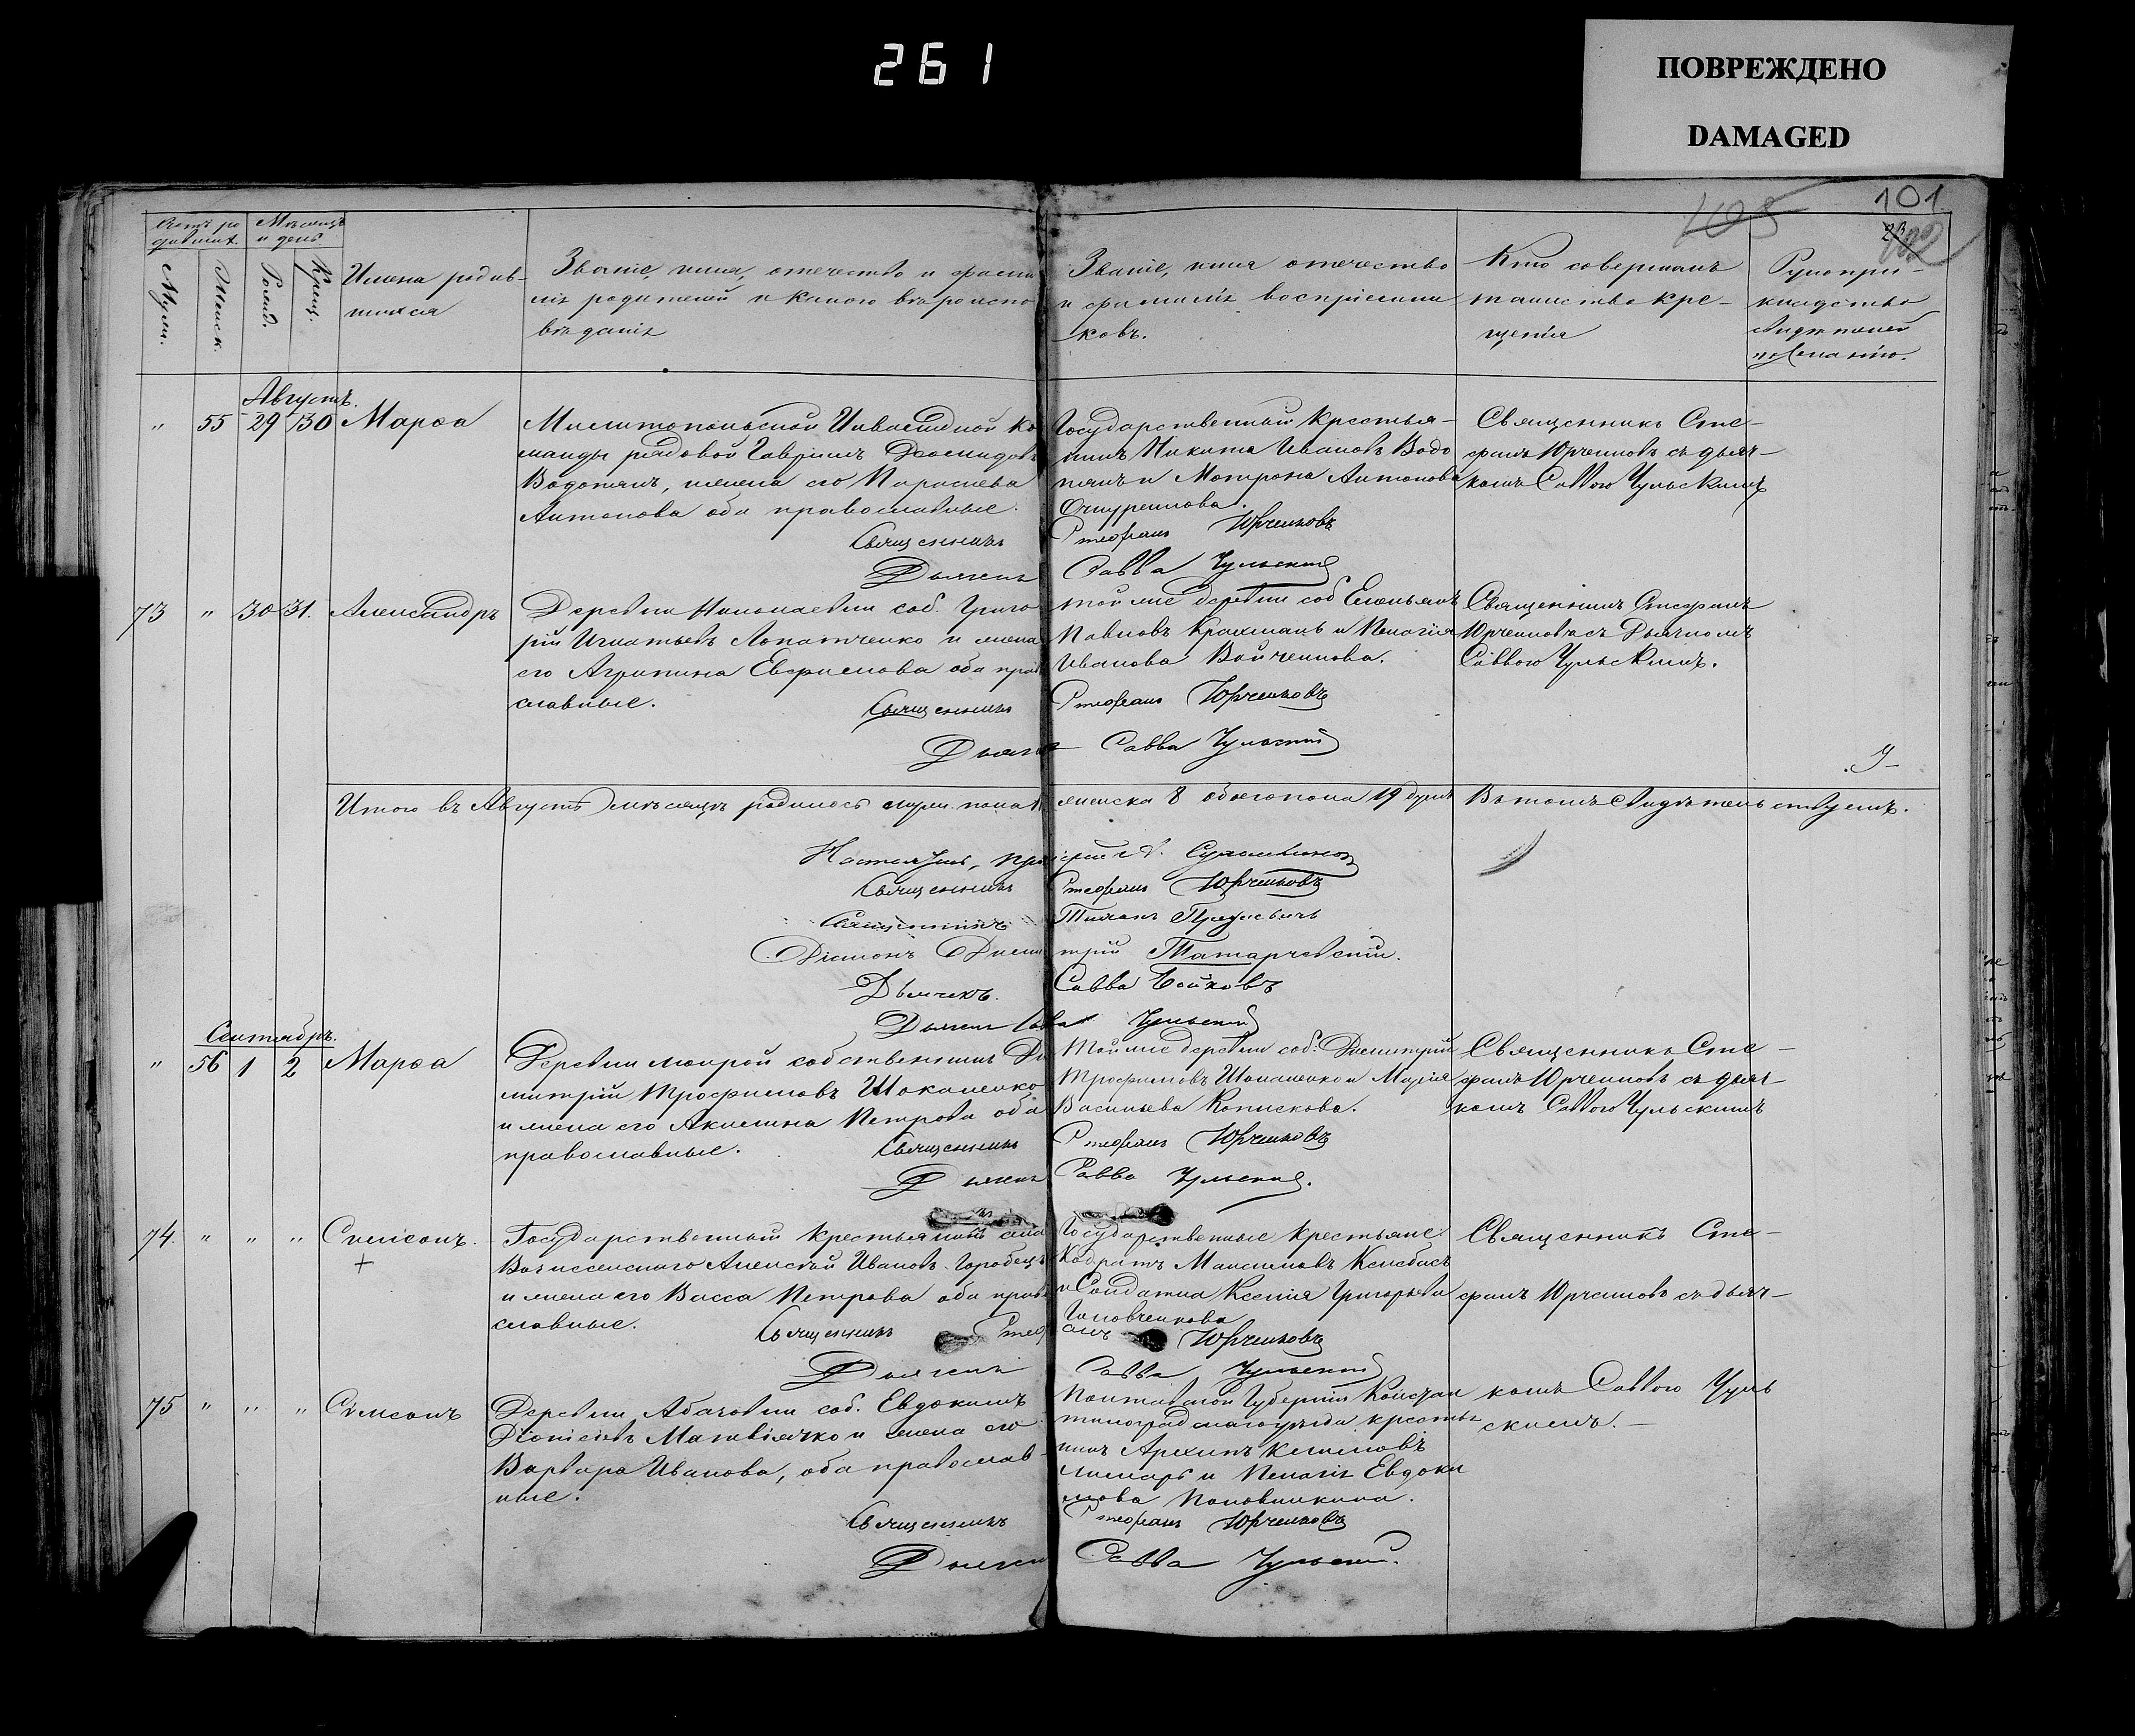 261
ПОВРЕЖДЕНО
DAMAGED
105
101
Счетъ ро
дивших.
Мѣсяцъ
и день.
Муж.
Женск.
Рожд.
Крещ.
Имена родив-
шихся
Званіе, имя, отечество и фами
лія родителей и какого вѣроиспо
вѣданія
Званіе, имя отечество
и фамилія воспріемни
ковъ.
Кто совершалъ
таинство кре-
щенія
Рукопри-
кладство
свидѣтелей
по желанію.
Августъ.
" 55 29 30 Марѳа
Мелитопольской Инвалидной ко
манды рядовой Гавріилъ Демидовъ
Водопянъ, жена его Параскева
Антонова оба православные.
Государственный крестья-
нинъ Никита Ивановъ Водо
пянъ и Матрона Антонова
Священникъ Сте-
фанъ Юрченковъ съ дьяч-
комъ Саввою Чульскимъ
Священникъ Стефанъ Юрченковъ
Дьячекъ Савва Чульскій
73 " 30 31. Александръ
Деревни Николаевки соб. Григо
рій Игнатьевъ Лопатченко и жена
его Агрипина Евфимова оба право
славные.
той же деревни соб Емельянъ
Павловъ Крахмаль и Пелагія
Иванова Войченкова.
Священникъ Стефанъ
Юрченковъ съ Дьячкомъ
Саввою Чульскимъ.
Священникъ Стефанъ Юрченковъ
Дьячекъ Савва Чульскій
Итого въ Августѣ мѣсяцѣ родилось муж. пола 11 женска 8 обоего пола 19 душъ Въ томъ свидѣтельствуемъ.
Настоятель, Протоіерей А.
Священникъ Стефанъ Юрченковъ
Священникъ
Діаконъ Димитрій Татарчевскій.
Дьячекъ. Савва Бойковъ
Дьячекъ Савва Чульскій
Сентябрь.
" 56 1 2 Марѳа
Деревни мокрой собственникъ Ди
митрій Трофимовъ Шокаленко
и жена его Акилина Петрова оба
православные.
Той же деревни соб. Димитрій
Трофимовъ Шокаленко и Марія
Васильева Копискова.
Священникъ Сте-
фанъ Юрченковъ съ дьяч-
комъ Саввою Чульскимъ
Священникъ Стефанъ Юрченковъ
Дьячекъ Савва Чульскій.
74. " " " Симеонъ.
+
Государственный крестьянинъ села
Вознесенскаго Алексѣй Ивановъ Горобецъ
и жена его Васса Петрова оба право
славные.
Государственные крестьяне:
Кодратъ Максимовъ
и Солдатка Ксенія Григорьева
Головченкова
Священникъ Сте-
фанъ Юрченковъ съ дьяч-
Священникъ Стефанъ Юрченковъ
Дьячекъ Савва Чульскій
75 " " " Симеонъ
Деревни Абачовки соб. Евдокимъ
Діонисіевъ Матвіячко и жена его
Варвара Иванова, оба православ-
ные.
Полтавской Губерніи Констан
тиноградскаго уѣзда крестья
нинъ Архипъ Климовъ
Лимарь и Пелагія Евдоки
мова Половинкина.
комъ Саввою Чуль
скимъ.
Священникъ Стефанъ Юрченковъ
Дьячекъ Савва Чульскій.